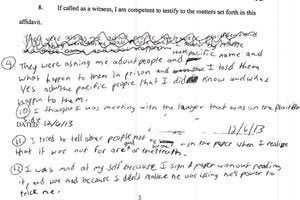 8. If called as a witness, I am competent to testify to the matters set forth in this
affidavit.
9 They were asking me about people and pacific name and
what happen to them in prison and I told them
Yes all the pacific people that I did know and what
happen to them.
10 I thought I was meeting with the lawyer that was on the
DATED: 12/6/13
12/6/13
11 I tried to tell other people not in the paper when I realize
that it was not for are or the truth.
12 I was mad at my self because I sign a paper without reading
it, and was mad because I didn't realize he was using he's power to
trick me.
3